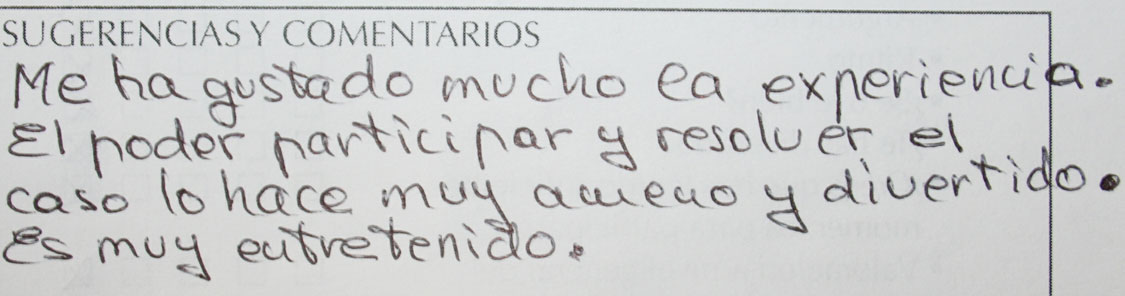 SUGERENCIAS Y COMENTARIOS
Me ha gustado mucho la experiencia.
El poder participar y resolver el
caso lo hace muy ameno y divertido.
Es muy entretenido.